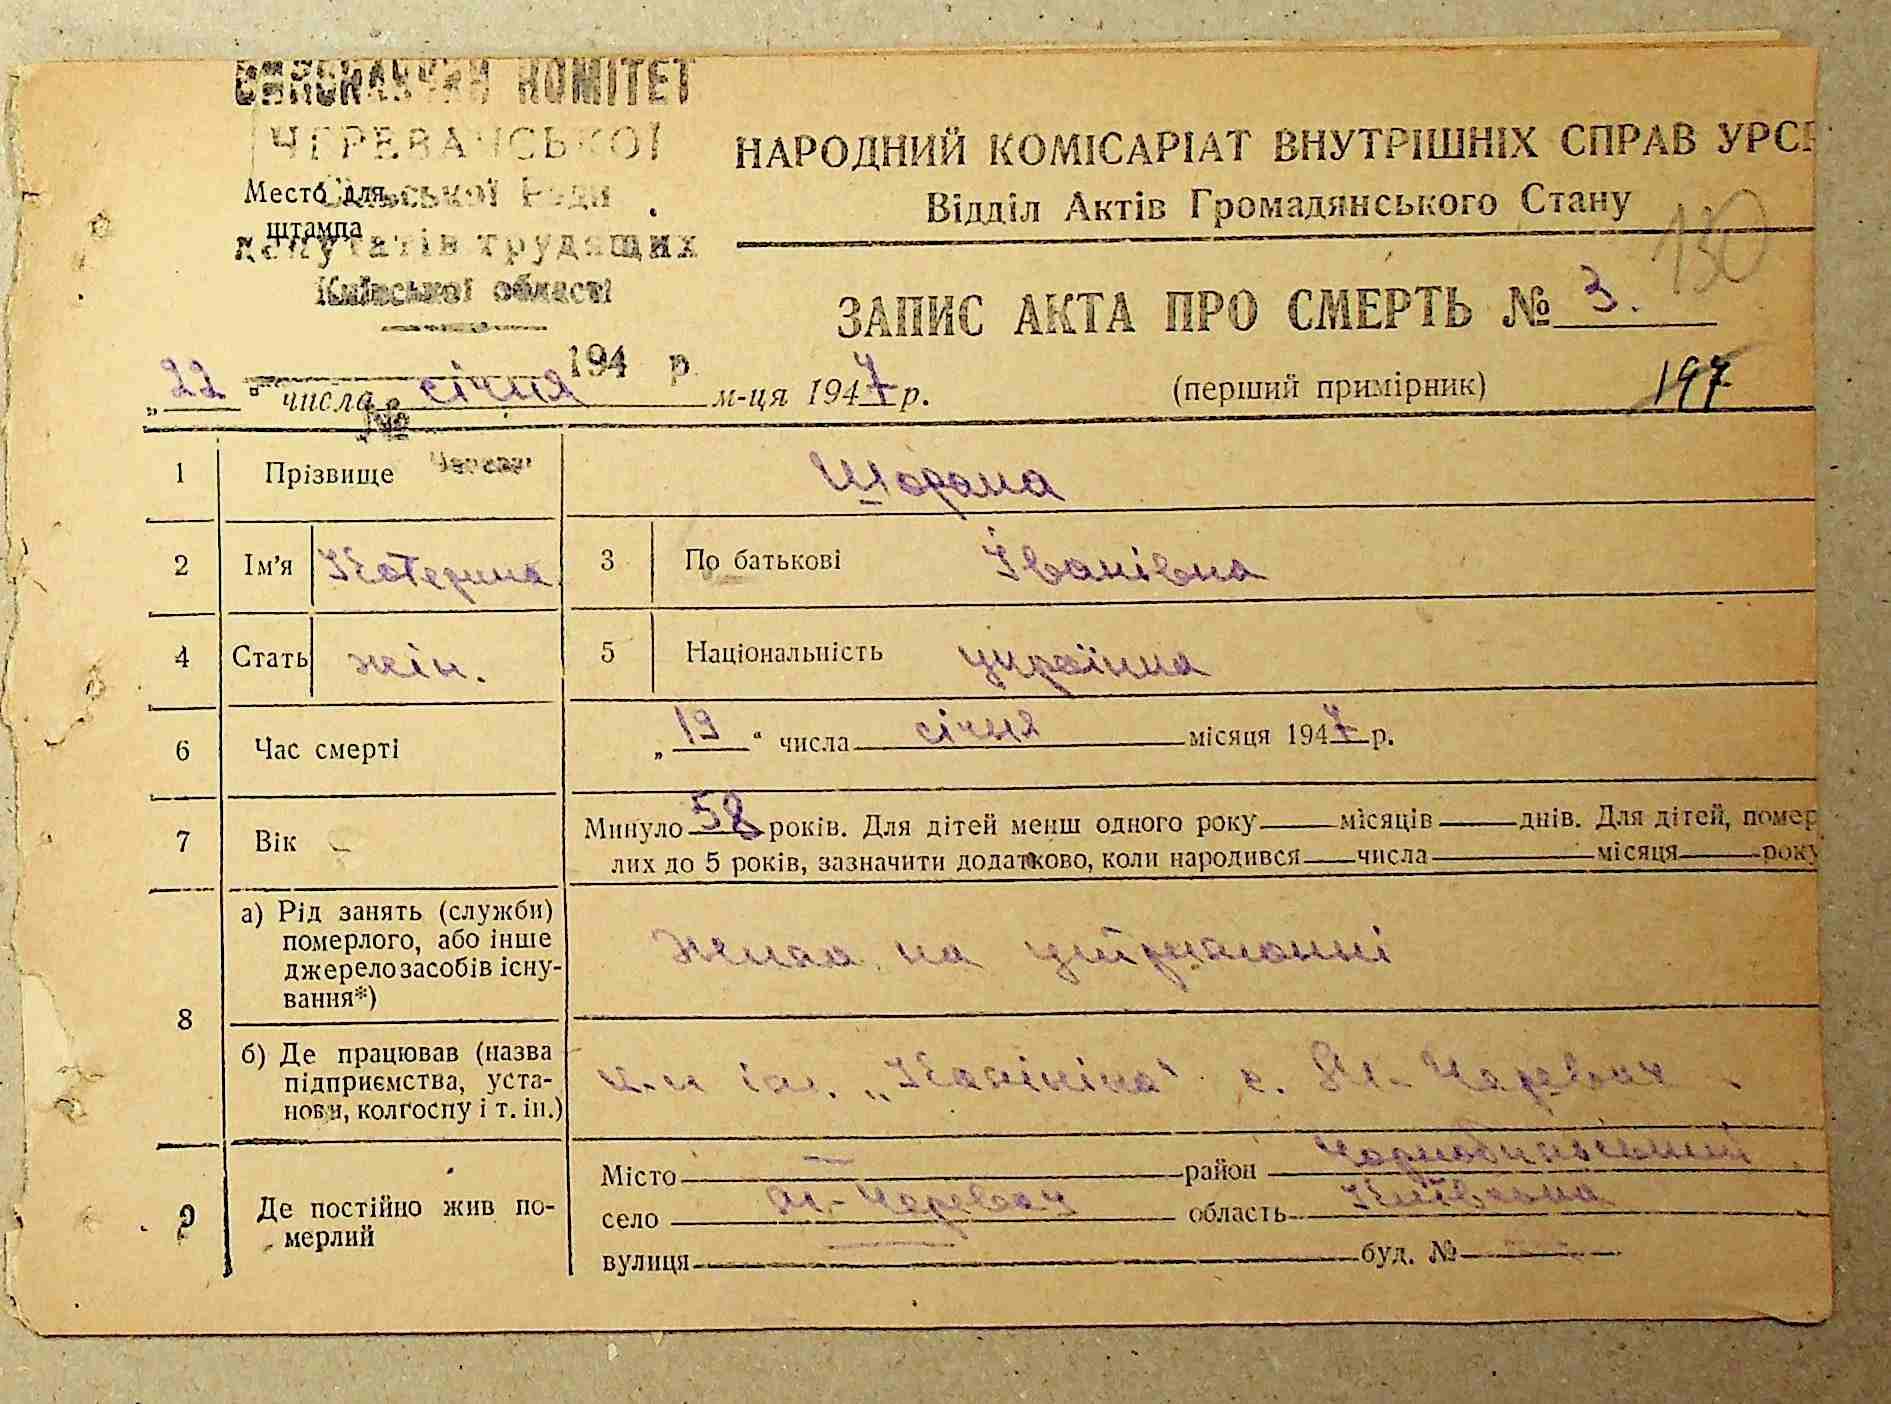 ВИКОНАВЧИЙ КОМІТЕТ
ЧЕРЕВАЧСЬКОЇ
Сільської Ради
депутатів трудящих
Київської області
194 р.
№
Место для
штампа
НАРОДНИЙ КОМІСАРІАТ ВНУТРІШНІХ СПРАВ УРСР
Відділ Актів Громадянського Стану
130
ЗАПИС АКТА ПРО СМЕРТЬ № 3.
„22“ числа січня м-ця 1947 р. (перший примірник) 197
1 Прізвище
2 Ім'я Катерина 3 По батькові Іванівна
4 Стать жін. 5 Національність українка
6 Час смерті „19“ числа січня місяця 1947 р.
7 Вік Минуло 58 років. Для дітей менш одного року місяців днів. Для дітей, помер
лих до 5 років, зазначити додатково, коли народився числа місяця року
8 а) Рід занять (служби)
померлого, або інше
джерело засобів існу-
вання*)
на утриманні
б) Де працював (назва
підприємства, уста-
нови, колгоспу і т. ін.)
к-п ім. „Калініна“ с. Черевач
9 Де постійно жив по-
мерлий
Місто — район Чорнобильський
село Черевач область Київська
вулиця — буд. № —